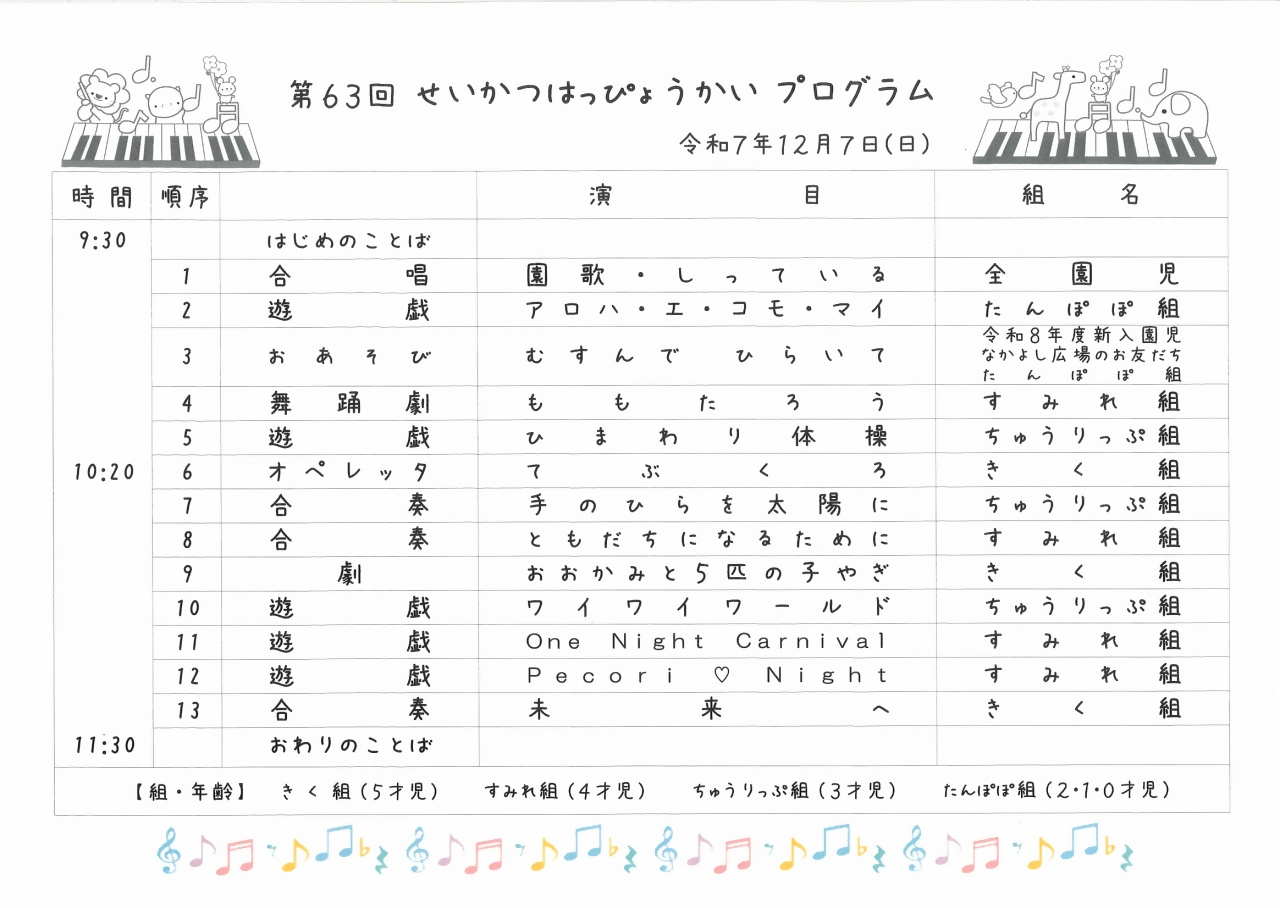 第63回 せいかつはっぴょうかい プログラム
令和7年12月7日(日)
時間 順序 演目 組名
9:30 はじめのことば
1 合唱 園歌・しっている 全園児
2 遊戯 アロハ・エ・コモ・マイ たんぽぽ組
3 おあそび むすんで ひらいて 令和8年度新入園児
なかよし広場のお友だち
たんぽぽ組
4 舞踊劇 ももたろう すみれ組
5 遊戯 ひまわり体操 ちゅうりっぷ組
10:20 6 オペレッタ てぶくろ きく組
7 合奏 手のひらを太陽に ちゅうりっぷ組
8 合奏 ともだちになるために すみれ組
9 劇 おおかみと5匹の子やぎ きく組
10 遊戯 ワイワイワールド ちゅうりっぷ組
11 遊戯 One Night Carnival すみれ組
12 遊戯 Pecori ♡ Night すみれ組
13 合奏 未来へ きく組
11:30 おわりのことば
【組・年齢】 きく組(5才児) すみれ組(4才児) ちゅうりっぷ組(3才児) たんぽぽ組(2・1・0才児)